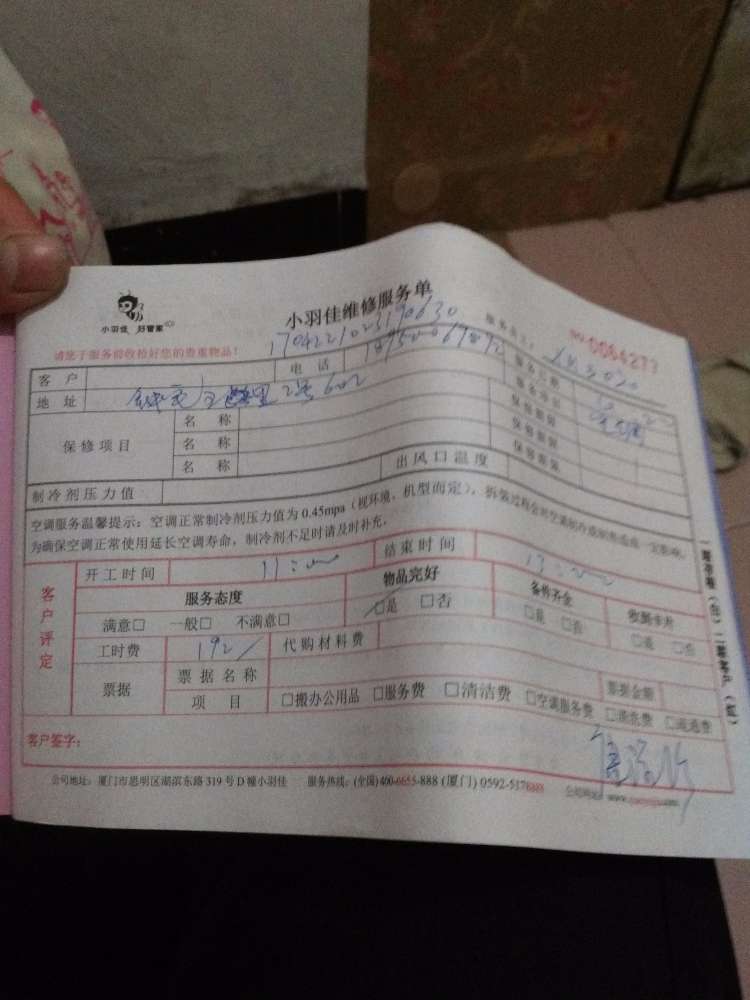 小羽佳 好管家
小羽佳维修服务单
请您于服务前收拾好您的贵重物品！
1704221023190630
服务员工：
NO.0064277
客 户
电 话
服务日期
地 址
2号602
服务项目
保修项目
名 称
保修期限
名 称
保修期限
名 称
保修期限
制冷剂压力值
出风口温度
空调服务温馨提示：空调正常制冷剂压力值为 0.45mpa（视环境、机型而定），拆装过程会对空调制冷质
为确保空调正常使用延长空调寿命，制冷剂不足时请及时补充。
客户评定
开工时间
11:00
结束时间
13:00
服务态度
物品完好
备件齐全
收到卡片
满意□ 一般□ 不满意□
□是 □否
□是 □否
□是 □否
工时费
192/
代购材料费
票据
票据名称
票据金额
项 目
□搬办公用品 □服务费 □清洁费 □空调服务费 □清洗费 □疏通费
客户签字：
公司地址：厦门市思明区湖滨东路 319 号 D 幢小羽佳 服务热线：(全国)400-6655-888 (厦门) 0592-5178888 公司网址：www.